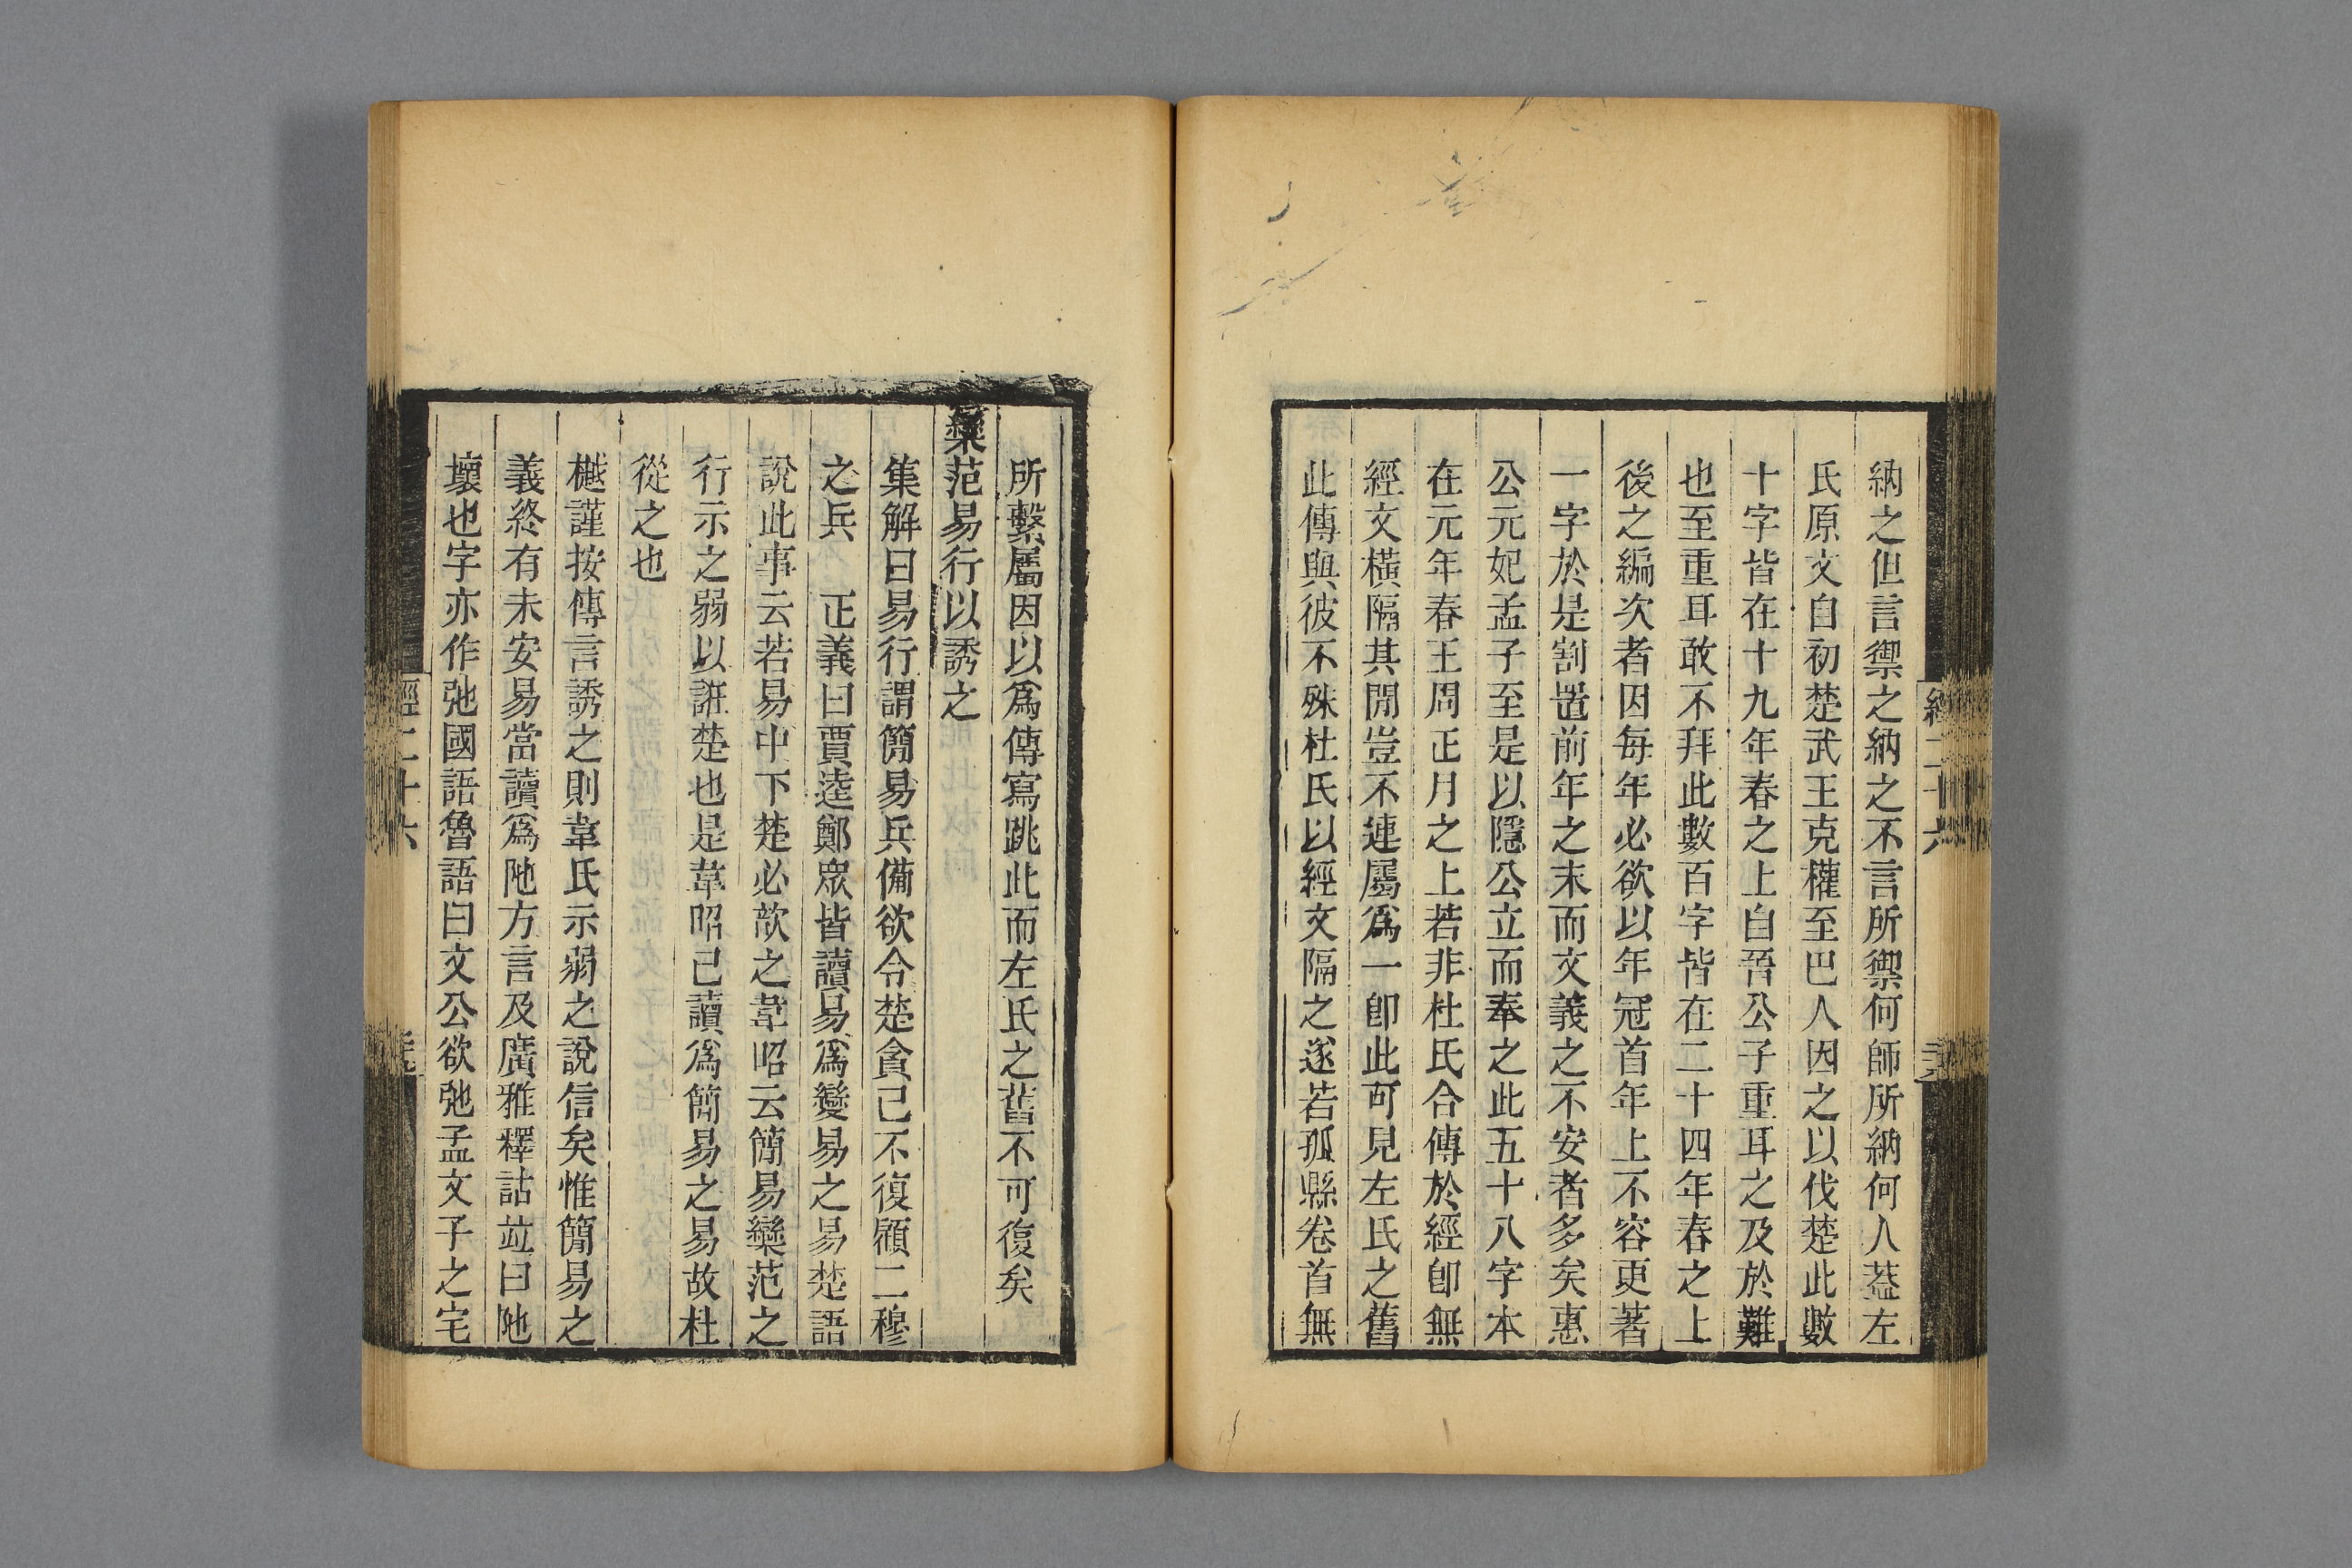 納之但言禦之納之不言所禦何師所納何人葢左
氏原文自初楚武王克權至巴人因之以伐楚此數
十字皆在十九年春之上自晉公子重耳之及於難
也至重耳敢不拜此數百字皆在二十四年春之上
後之編次者因每年必欲以年冠首年上不容更著
一字於是割置前年之末而文義之不安者多矣惠
公元妃孟子至是以隱公立而奉之此五十八字本
在元年春王周正月之上若非杜氏合傳於經卽無
經文橫隔其閒豈不連屬爲一卽此可見左氏之舊
此傳與彼不殊杜氏以經文隔之遂若孤縣卷首無
所繫屬因以爲傳寫跳此而左氏之舊不可復矣
欒范易行以誘之
集解曰易行謂簡易兵備欲令楚貪己不復顧二穆
之兵　正義曰賈逵鄭眾皆讀易爲變易之易楚語
說此事云若易中下楚必歆之韋昭云簡易欒范之
行示之弱以誑楚也是韋昭已讀爲簡易之易故杜
從之也
樾謹按傳言誘之則韋氏示弱之說信矣惟簡易之
義終有未安易當讀爲阤方言及廣雅釋詁竝曰阤
壞也字亦作弛國語魯語曰文公欲弛孟文子之宅
經二十六